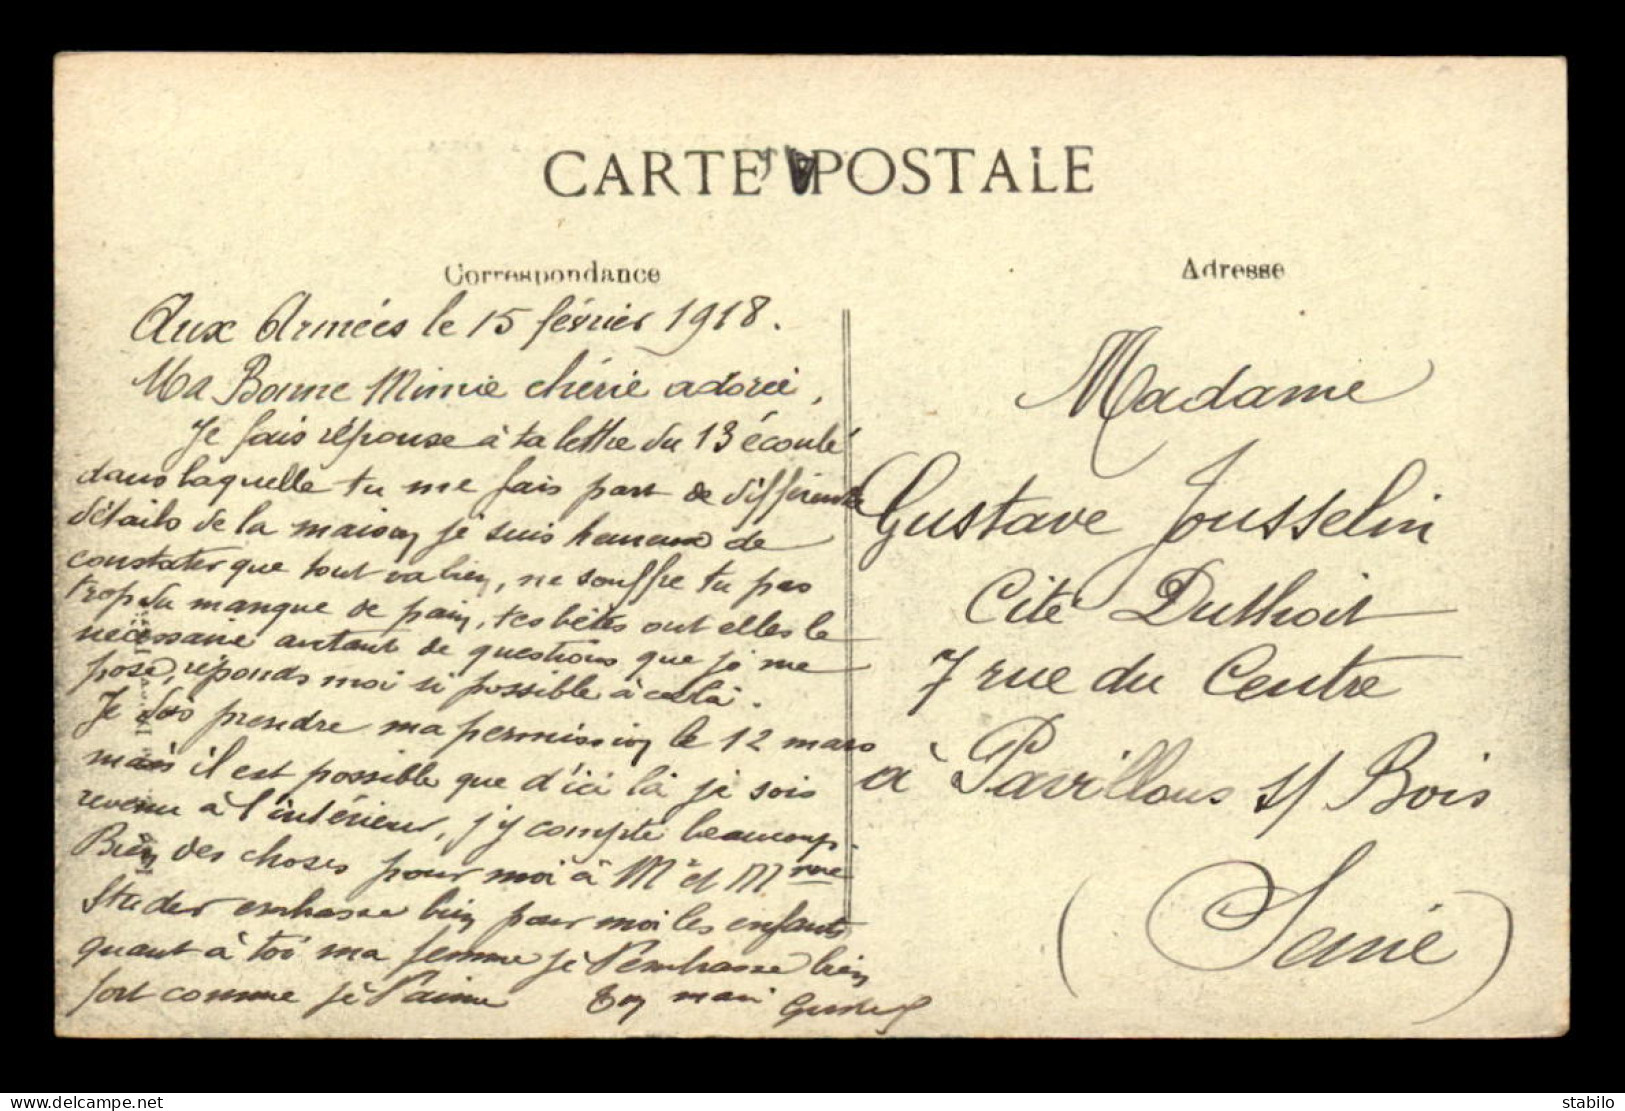 CARTE POSTALE
Correspondance
Aux Armées le 15 février 1918.
Ma Bonne Mimie chérie adorée,
Je fais réponse à ta lettre du 13 écoulé
dans laquelle tu me fais part de différents
détails de la maison, je suis heureux de
constater que tout va bien, ne souffre tu pas
trop du manque de pain, tes bêtes ont elles le
nécessaire autant de questions que je me
pose, réponds moi si possible à cela.
Je dois prendre ma permission le 12 mars
mais il est possible que d'ici là je sois
revenu à l'intérieur, j'y compte beaucoup.
Bien des choses pour moi à Mr et Mme
Studer embrasse bien pour moi les enfants
quant à toi ma femme je t'embrasse bien
fort comme je t'aime Ton mari Gustave
Adresse
Madame
Gustave Jousselin
Cité Duthoit
7 rue du Centre
à Pavillons s/ Bois
(Seine)
stabilo
www.delcampe.net